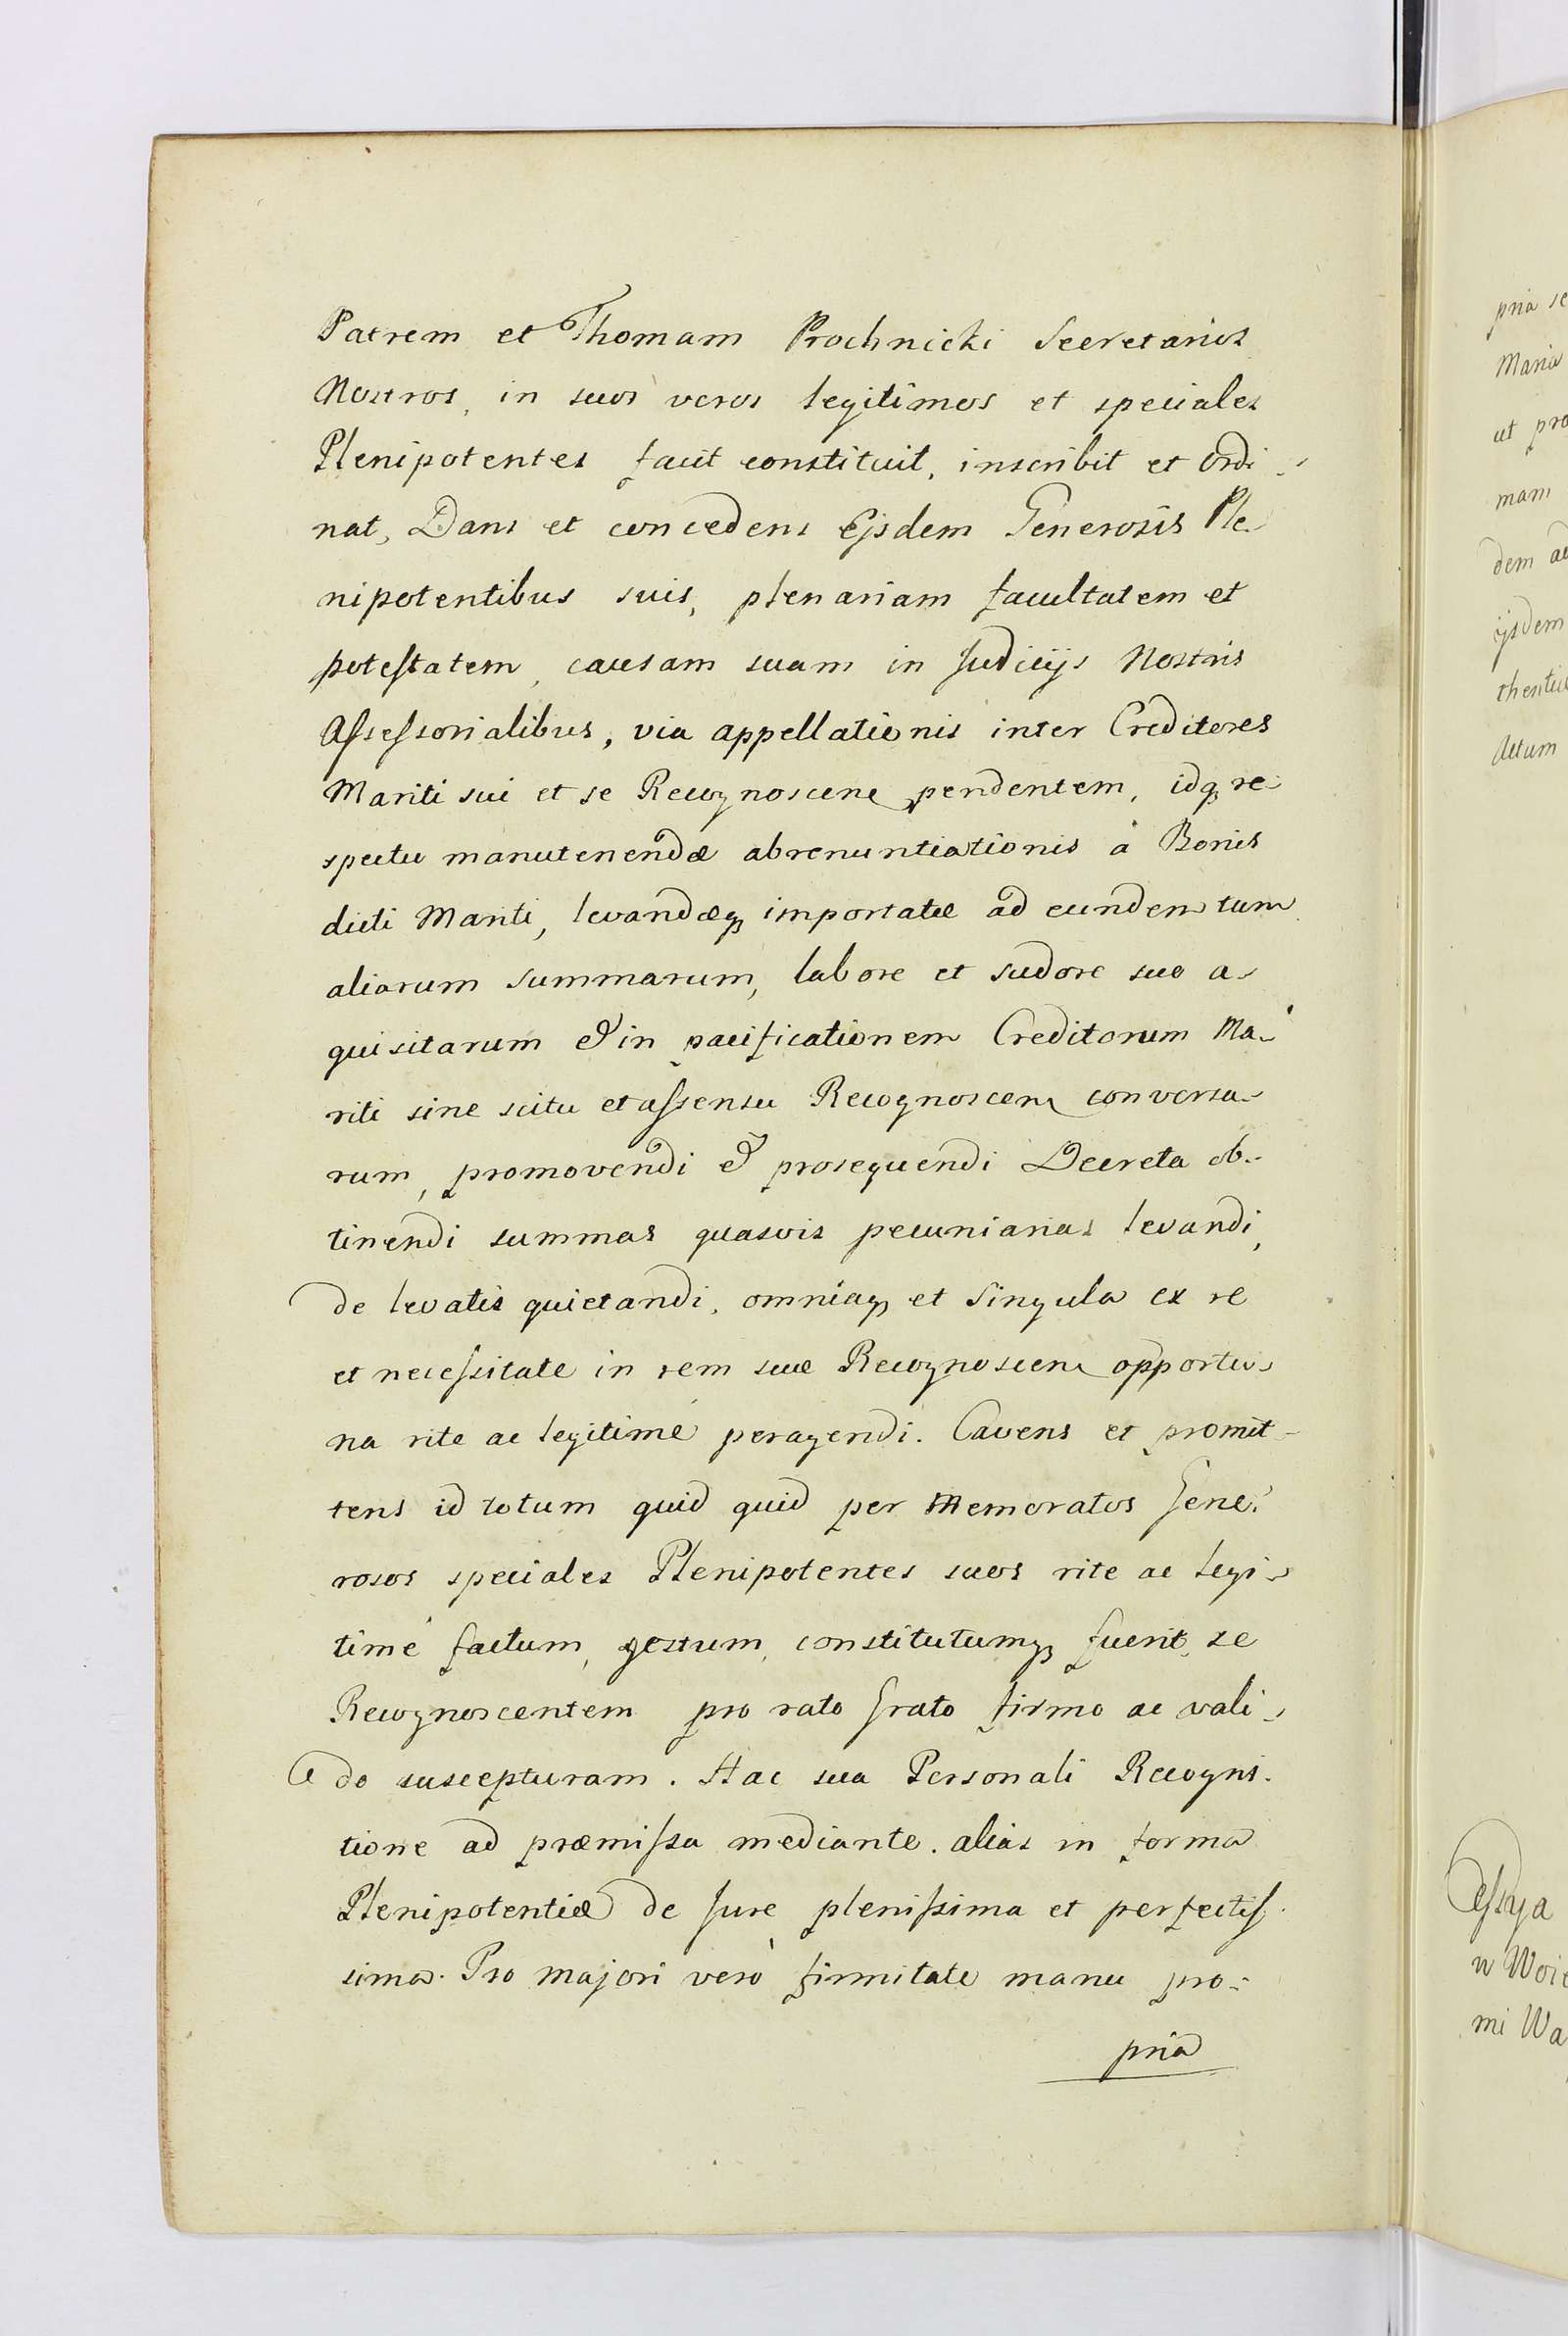 Patrem et Thomam Prochnicki Secretarios
Nostros, in suos veros legitimos et speciales
Plenipotentes facit constituit, inscribit et Ordi-
nat, Dans et concedens Ejsdem Generosis Ple-
nipotentibus suis, plenariam facultatem et
poteſtatem, causam suam in Judicijs Nostris
Aſseſsorialibus, via appellationis inter Creditores
Mariti sui et se Recognoscen pendentem, idq re-
spectu manutenendæ abrenuntiationis à Bonis
dicti Mariti, levandæq importatæ ad eundem tum
aliarum summarum, labore et sudore suo a-
quisitarum & in pacificationem Creditorum Ma-
riti sine scitu et aſsensu Recognoscen conversa-
rum, promovendi & prosequendi Decreta ob-
tinendi summas quasvis pecuniarias levandi,
de levatis quietandi, omniaq et Singula ex re
et neceſsitate in rem suæ Recognoscen opportu-
na rite ac legitimé peragendi. Cavens et promit-
tens id totum quid quid per Memoratos Gene-
rosos speciales Plenipotentes suos rite ac legi-
timé factum, gestum, constitutumq fuerit, se
Recognoscentem pro rato Grato firmo ac vali-
do suscepturam. Hac sua Personali Recogni-
tione ad præmiſsa mediante. alias in forma
Plenipotentiæ de Jure pleniſsima et perfectiſ-
sima. Pro majori verò firmitate manu pro-
pria
pria se
Maria
ut pro
mam
dem
ijsdem
Actum
w Woie
mi Wa